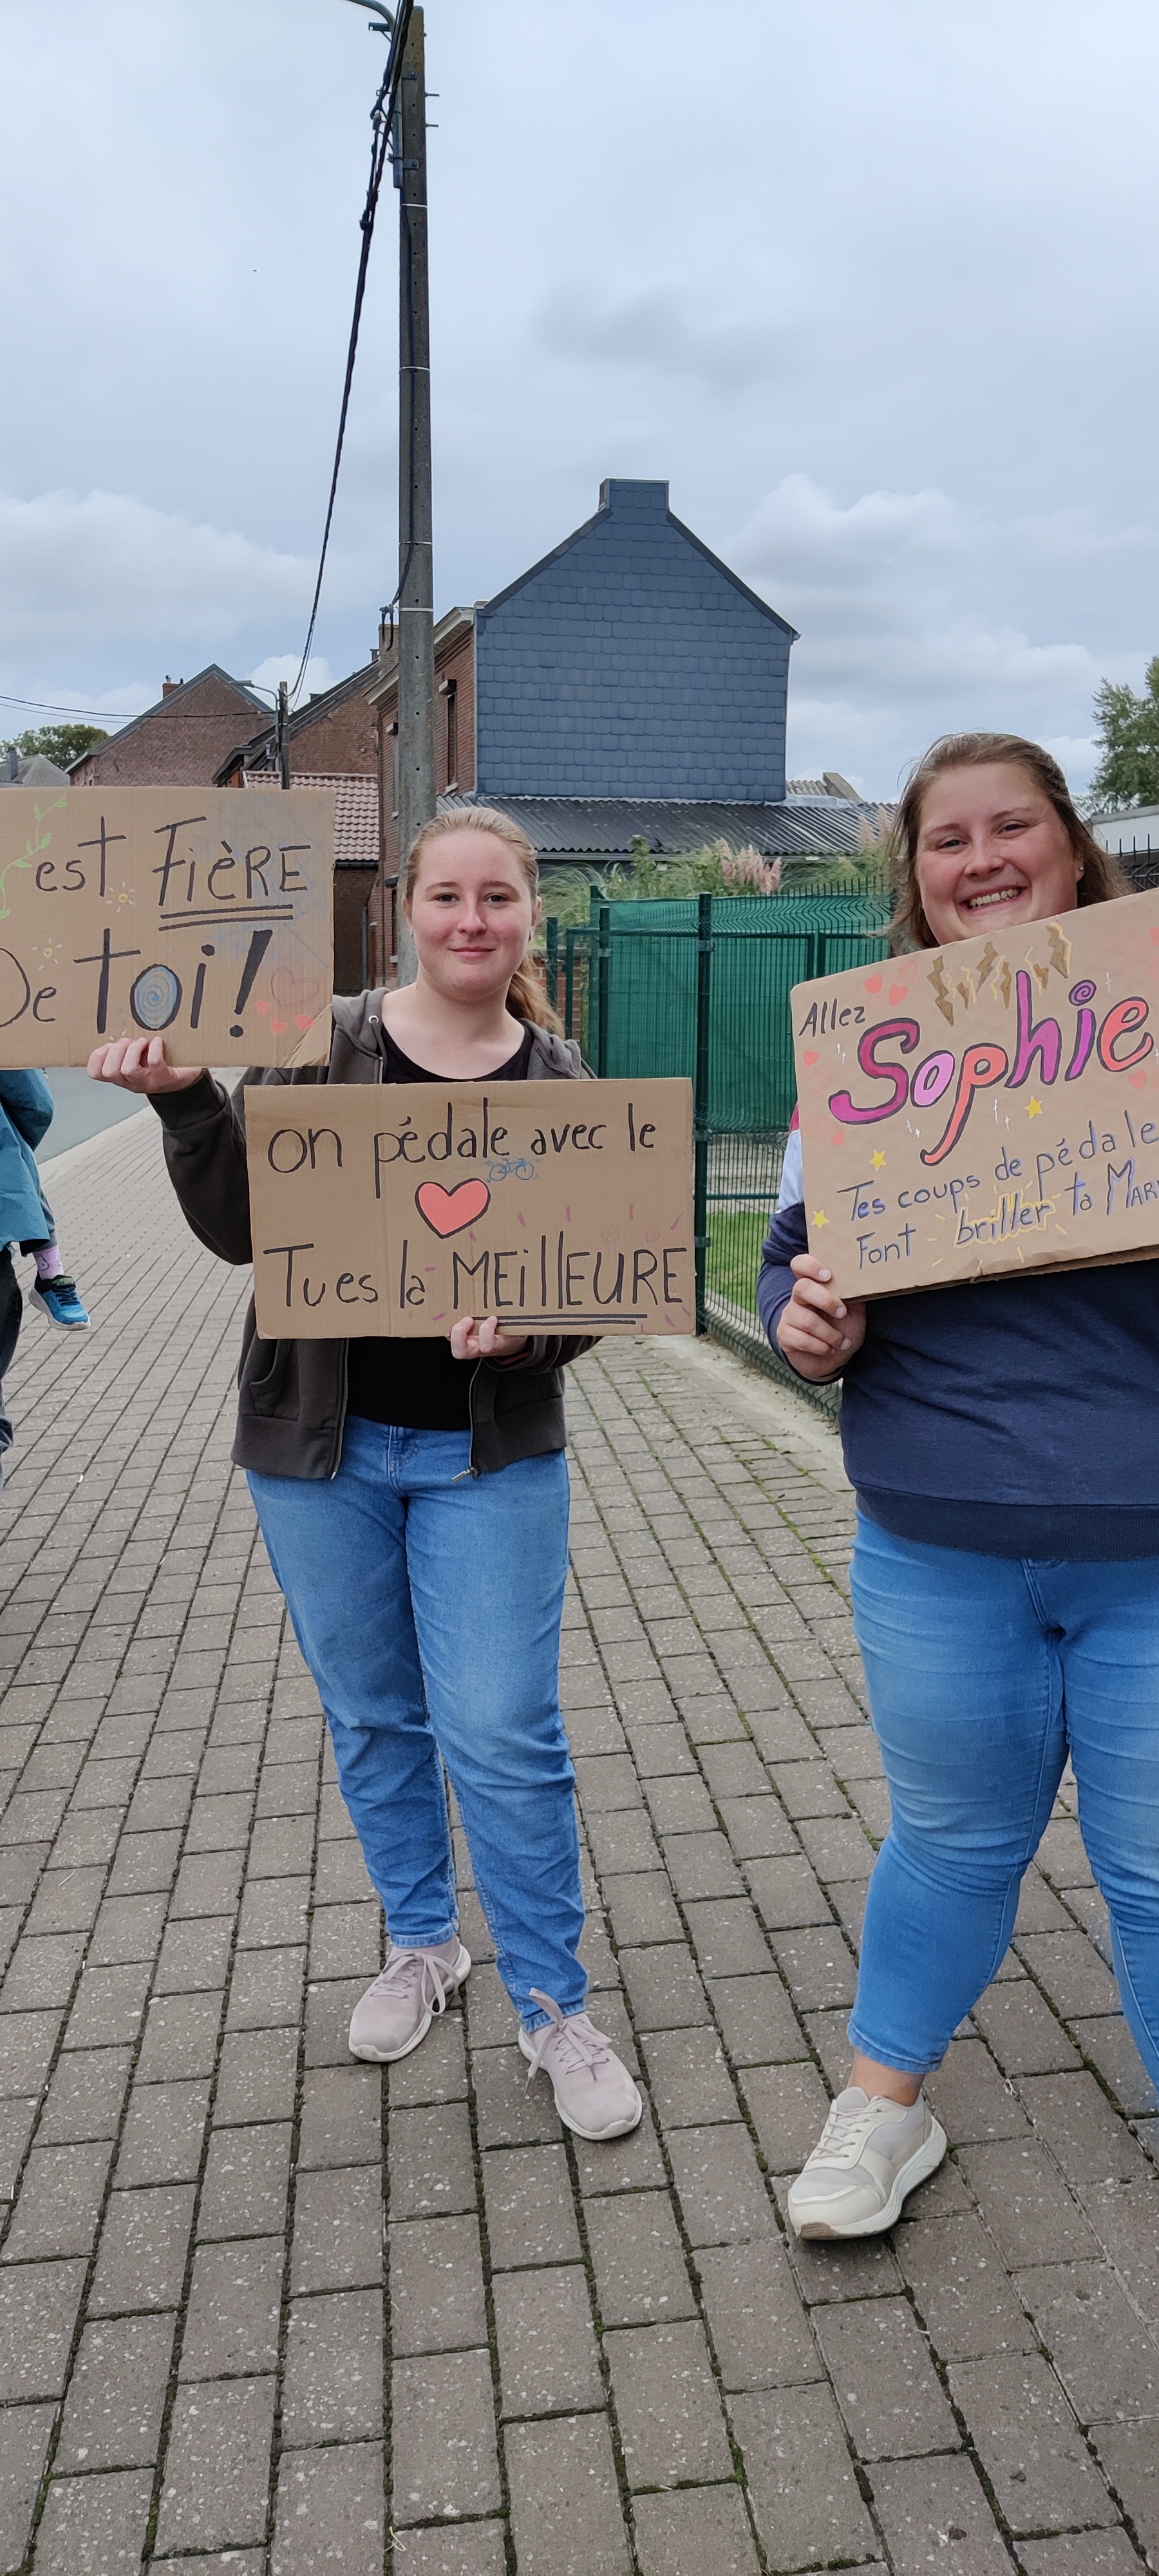 est FièRE
De toi!
on pédale avec le
Tu es la MEillEURE
Allez
Sophie
Tes coups de pédale
Font briller ta